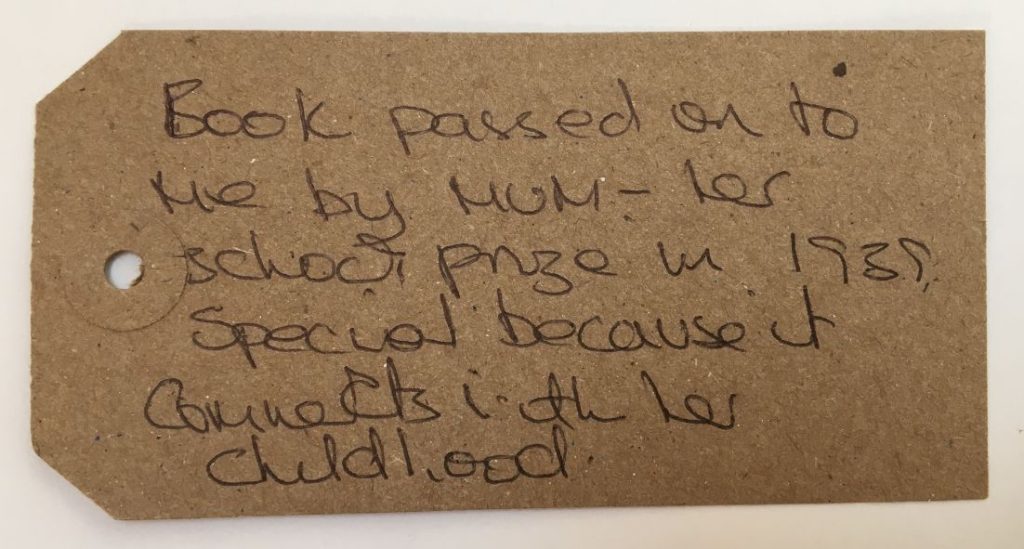 Book passed on to
me by MUM - her
school prize in 1939.
Special because it
connects with her
childhood.